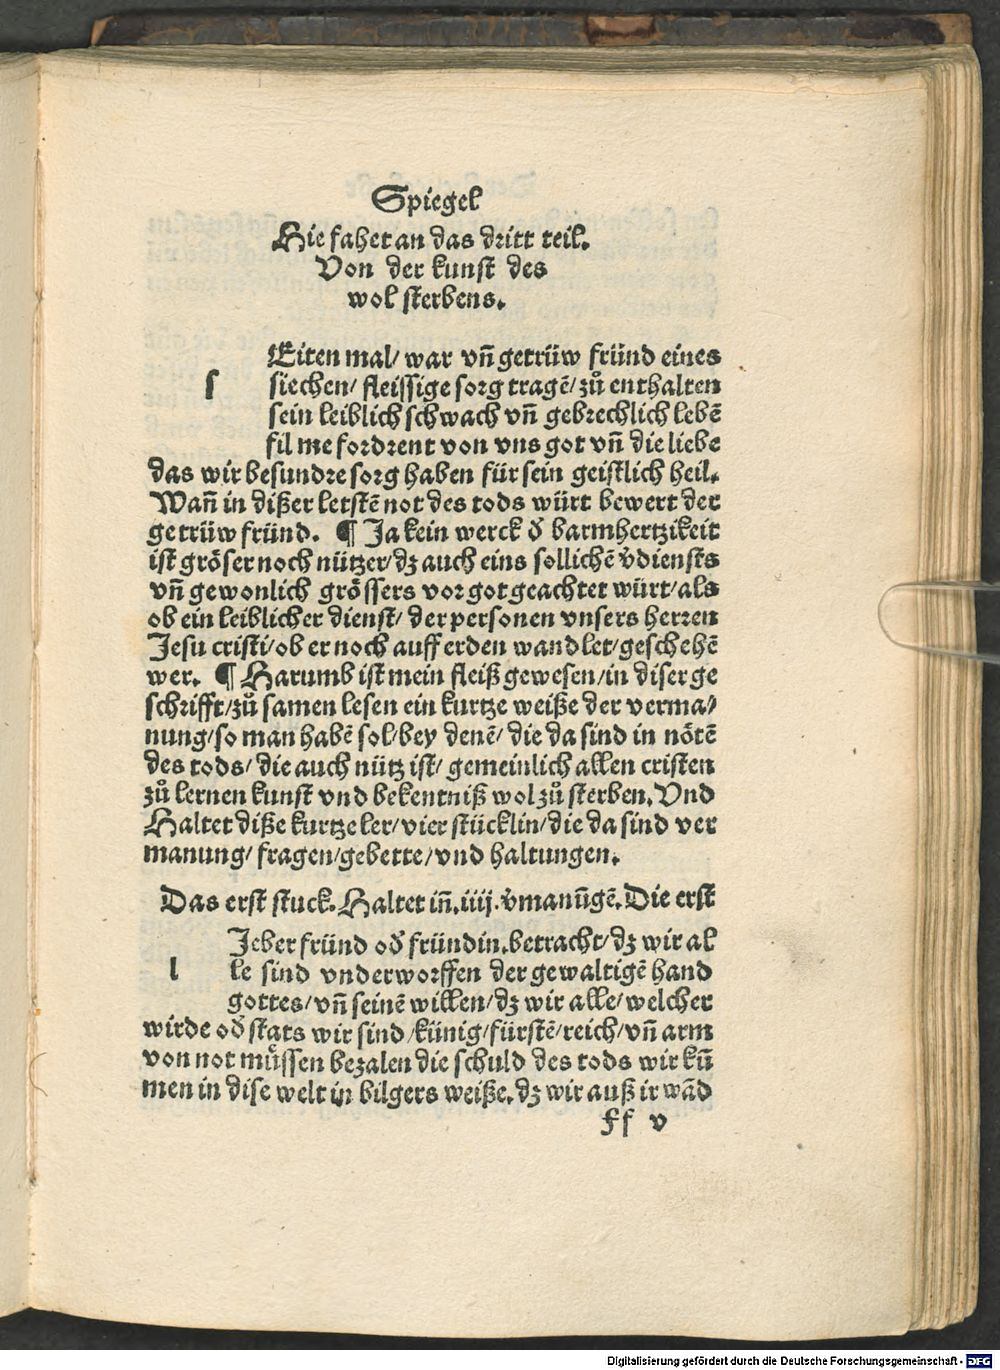 Spiegel
Hie fahet an das dritt teil.
Von der kunst des
wol sterbens.
s
Eiten mal/ war vñ getrüw fründ eines
siechen/ fleissige sorg tragẽ/ zů enthalten
sein leiblich schwach vñ gebrechlich lebẽ
fil me fordrent von vns got vñ die liebe
das wir besundre sorg haben für sein geistlich heil.
Wañ in dißer letstẽ not des tods würt bewert der
getrüw fründ. ¶ Ja kein werck d̕ barmhertzikeit
ist gröser noch nützer/ dz auch eins sollichẽ v̕diensts
vñ gewonlich grössers vor got geachtet würt/ als
ob ein leiblicher dienst/ der personen vnsers herren
Jesu cristi/ ob er noch auff erden wandlet/ geschehẽ
wer. ¶ Harumb ist mein fleiß gewesen/ in diser ge
schrifft/ zů samen lesen ein kurtze weiße der verma/
nung/ so man habẽ sol/ bey denẽ/ die da sind in nötẽ
des tods/ die auch nütz ist/ gemeinlich allen cristen
zů lernen kunst vnd bekentniß wol zů sterben. Vnd
Haltet diße kurtze ler/ vier stücklin/ die da sind ver
manung/ fragen/ gebette/ vnd haltungen.
Das erst stuck. Haltet iñ. iiij. v̕manũgẽ. Die erst
l
Jeber fründ od̕ fründin. betracht/ dz wir al
le sind vnderworffen der gewaltigẽ hand
gottes/ vñ seinẽ willen/ dz wir alle/ welcher
wirde od̕ stats wir sind/ künig/ fürstẽ/ reich/ vñ arm
von not müssen bezalen die schuld des tods wir kũ
men in dise welt in bilgers weiße. dz wir auß ir wãd
ff v
Digitalisierung gefördert durch die Deutsche Forschungsgemeinschaft - DFG